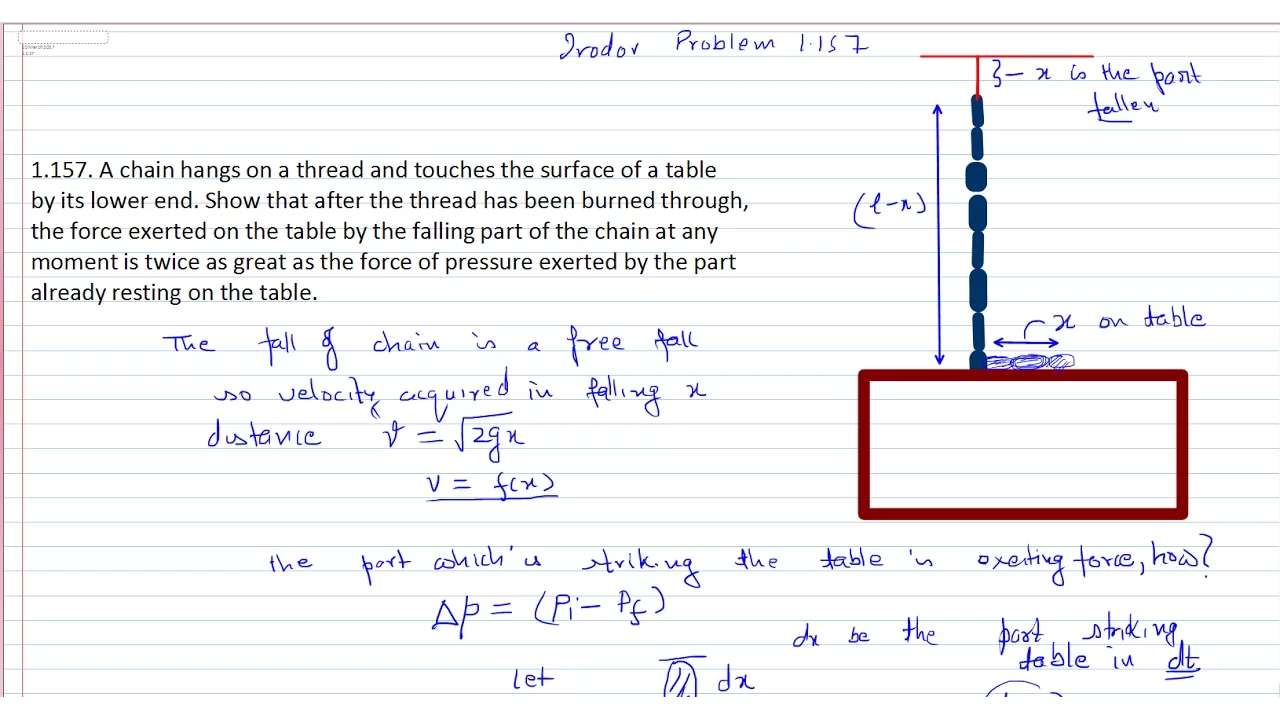 Irodov Problem 1.157
}- x is the part
fallen
1.157. A chain hangs on a thread and touches the surface of a table
by its lower end. Show that after the thread has been burned through,
the force exerted on the table by the falling part of the chain at any
moment is twice as great as the force of pressure exerted by the part
already resting on the table.
(l-x)
x on table
The fall of chain is a free fall
so velocity acquired in falling x
distance v = √2gx
v = f(x)
the part which is striking the table is exerting force, how?
Δp = (Pi - Pf)
dx be the part striking
table in dt
Let dx